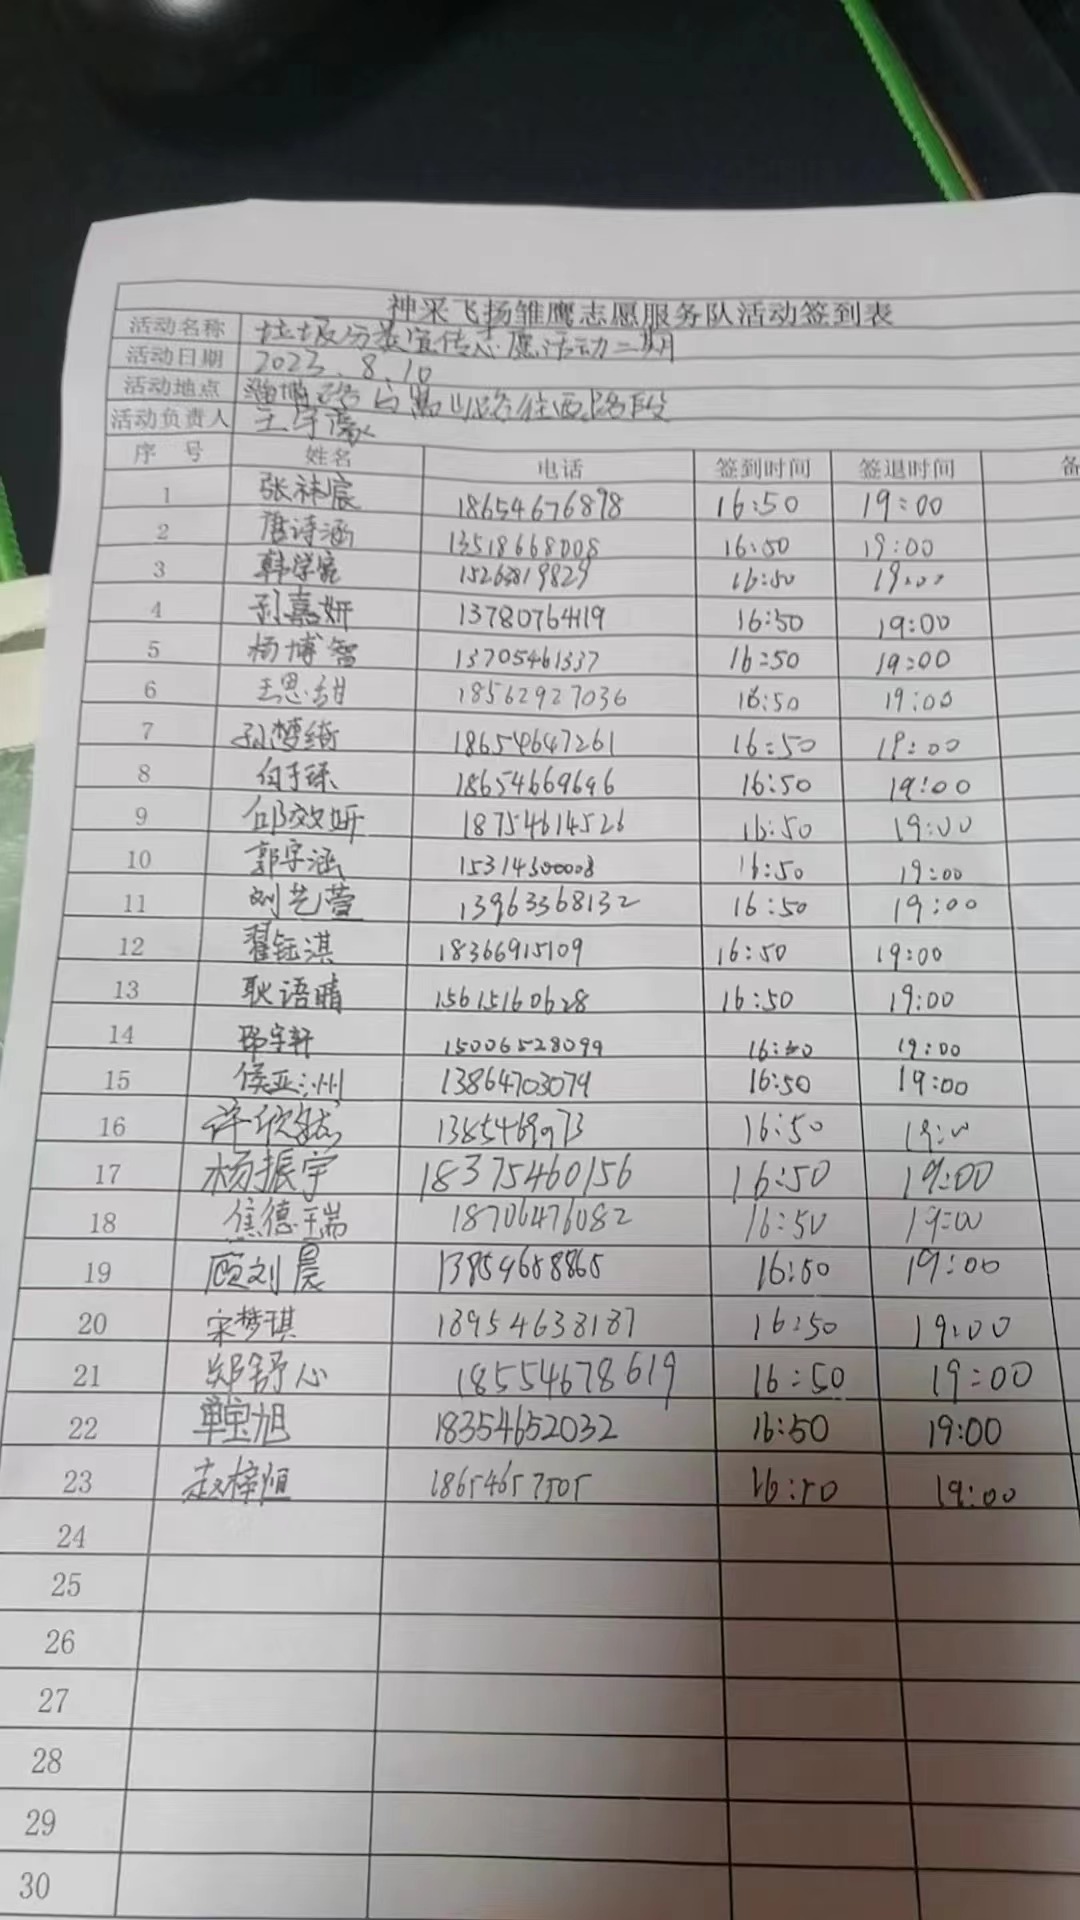 神采飞扬雏鹰志愿服务队活动签到表
活动名称 垃圾分类宣传志愿活动二期
活动日期 2023.8.10
活动地点 淄博路与嵩山路往西路段
活动负责人 王宇豪
序 号 姓名 电话 签到时间 签退时间 备
1 张祎宸 18654676898 16:50 19:00
2 唐诗涵 13518668008 16:50 19:00
3 韩学宸 15263819829 16:50 19:00
4 孙嘉妍 13780764419 16:50 19:00
5 杨博智 13705461337 16:50 19:00
6 王思甜 18562927036 16:50 19:00
7 孙梦绮 18654647261 16:50 19:00
8 向于琢 18654669696 16:50 19:00
9 邱效妍 18754614526 16:50 19:00
10 郭宇涵 15314300008 16:50 19:00
11 刘艺萱 13963368132 16:50 19:00
12 翟钰淇 18366915109 16:50 19:00
13 耿语晴 15615160628 16:50 19:00
14 宇轩 15006528099 16:50 19:00
15 侯亚洲 13864703079 16:50 19:00
16 许欣 1385469973 16:50 19:00
17 杨振宇 18375460156 16:50 19:00
18 焦德瑞 18706476082 16:50 19:00
19 顾刘晨 13854658865 16:50 19:00
20 宋梦琪 18954638187 16:50 19:00
21 郑舒心 18554678619 16:50 19:00
22 单宝旭 18354652032 16:50 19:00
23 赵梓恒 18654657505 16:50 19:00
24
25
26
27
28
29
30